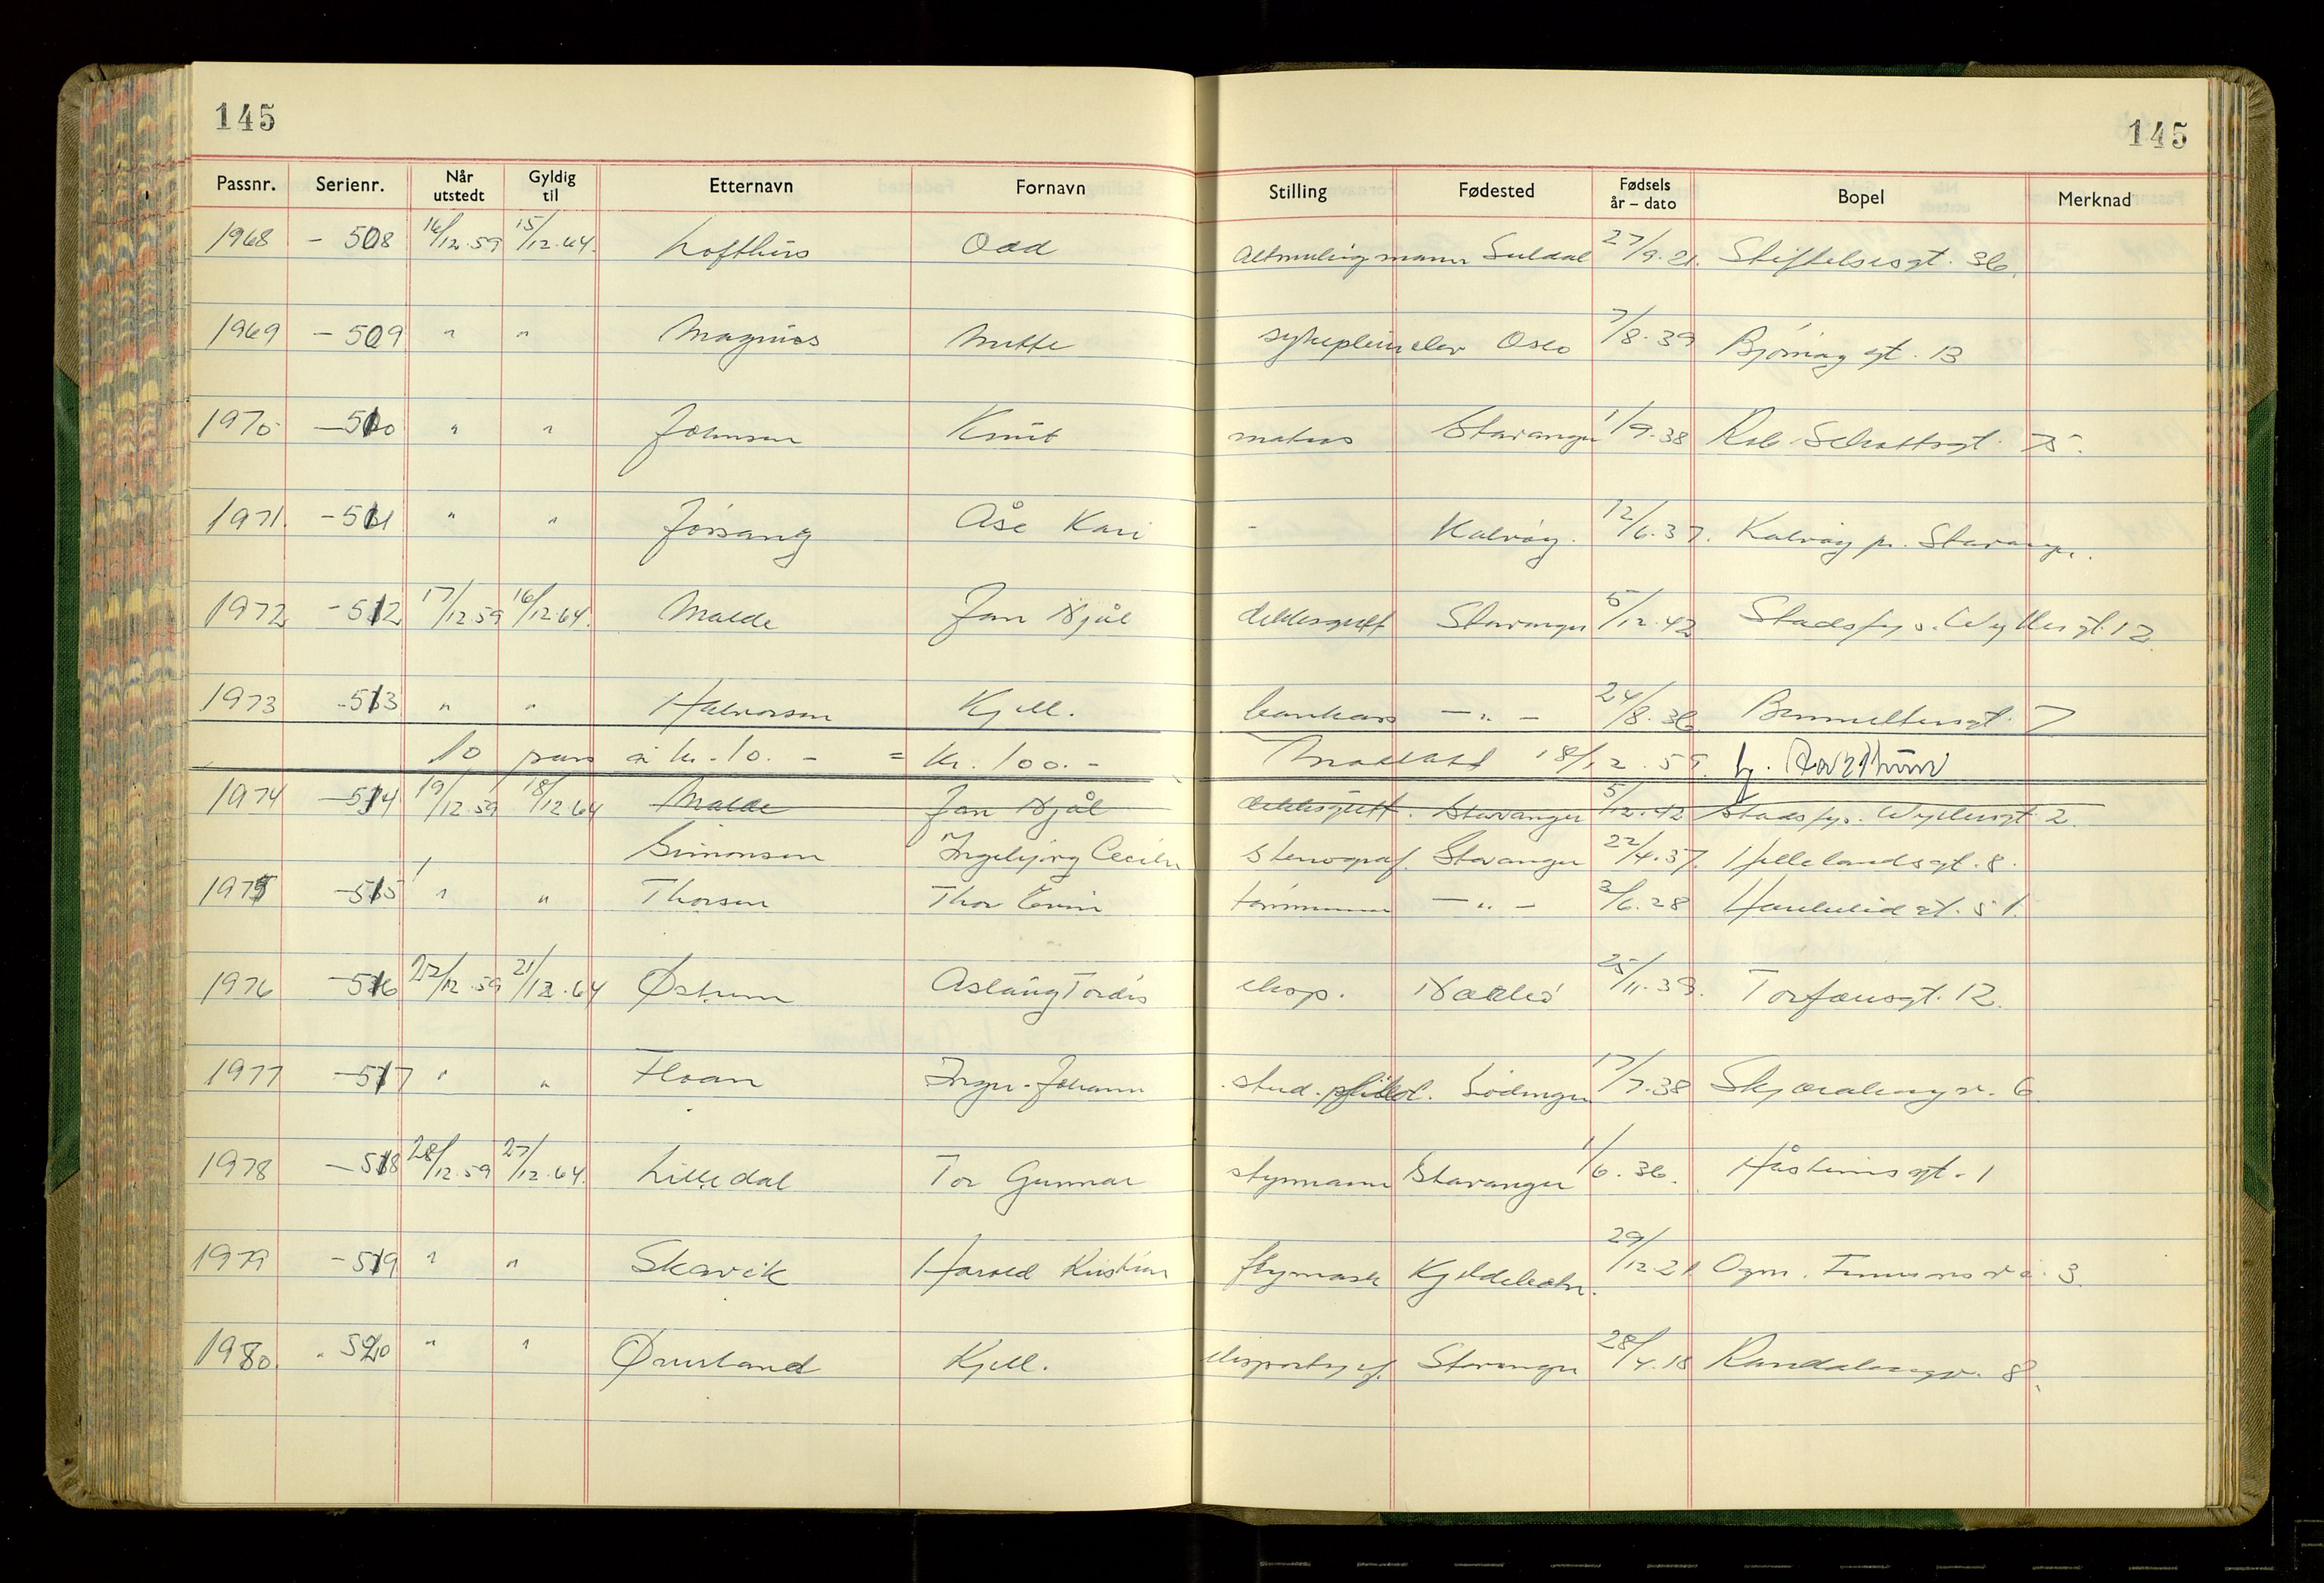 145
145
Passnr. Serienr. Når utstedt Gyldig til Etternavn Fornavn Stilling Fødested Fødsels år – dato Bopel Merknad
1968 – 508 16/12.59 15/12.64. Lofthus Odd Altmuligmann Suldal 27/9.21. Stiftelsesgt. 36.
1969 – 509 " " Magnus Mette Oslo 7/8.39 gt. 13
1970 – 510 " " Johnsen Knut matros Stavanger 1/9.38 Rob. Schottsgt. 75.
1971. – 511 " " Jørsang Åse Kari - Kalvøy. 12/6.37. Kalvøy pr. Stavanger.
1972 – 512 17/12.59 16/12.64. Malde Jan Njål dekksgutt Stavanger 5/12.42 Stadsfys. Wyllersgt. 12.
1973 – 513 " " Halvorsen Kjell. bankass – " – 24/8.36 7
10 pass à kr. 10.– = kr. 100.– Mottatt 18/12.59.
1974 – 514 19/12.59 18/12.64 Malde Jan Njål dekksgutt. Stavanger 5/12.42 Stadsfys. Wyllersgt. 2.
Simonsen Ingebjørg Cecilie Stenograf. Stavanger 22/4.37. Hellelandsgt. 8.
1975 – 515 " " Thorsen Thor – " – 3/6.28 Haukelidgt. 51.
1976 – 516 22/12.59 21/12.64 Østrem Aslaug Tordis eksp. 25/11.39. Torfæusgt. 12.
1977 – 517 " " Floan Inger-Johanne stud. filol. Lødingen 17/7.38 6
1978 – 518 28/12.59 27/12.64. Lilledal Tor Gunnar styrmann Stavanger 1/6.36. Håsteinsgt. 1
1979 – 519 " " Skarvik Harald Kristian 29/12.21 3.
1980. – 520 " " Ørusland Kjell. Stavanger 28/4.18 8.